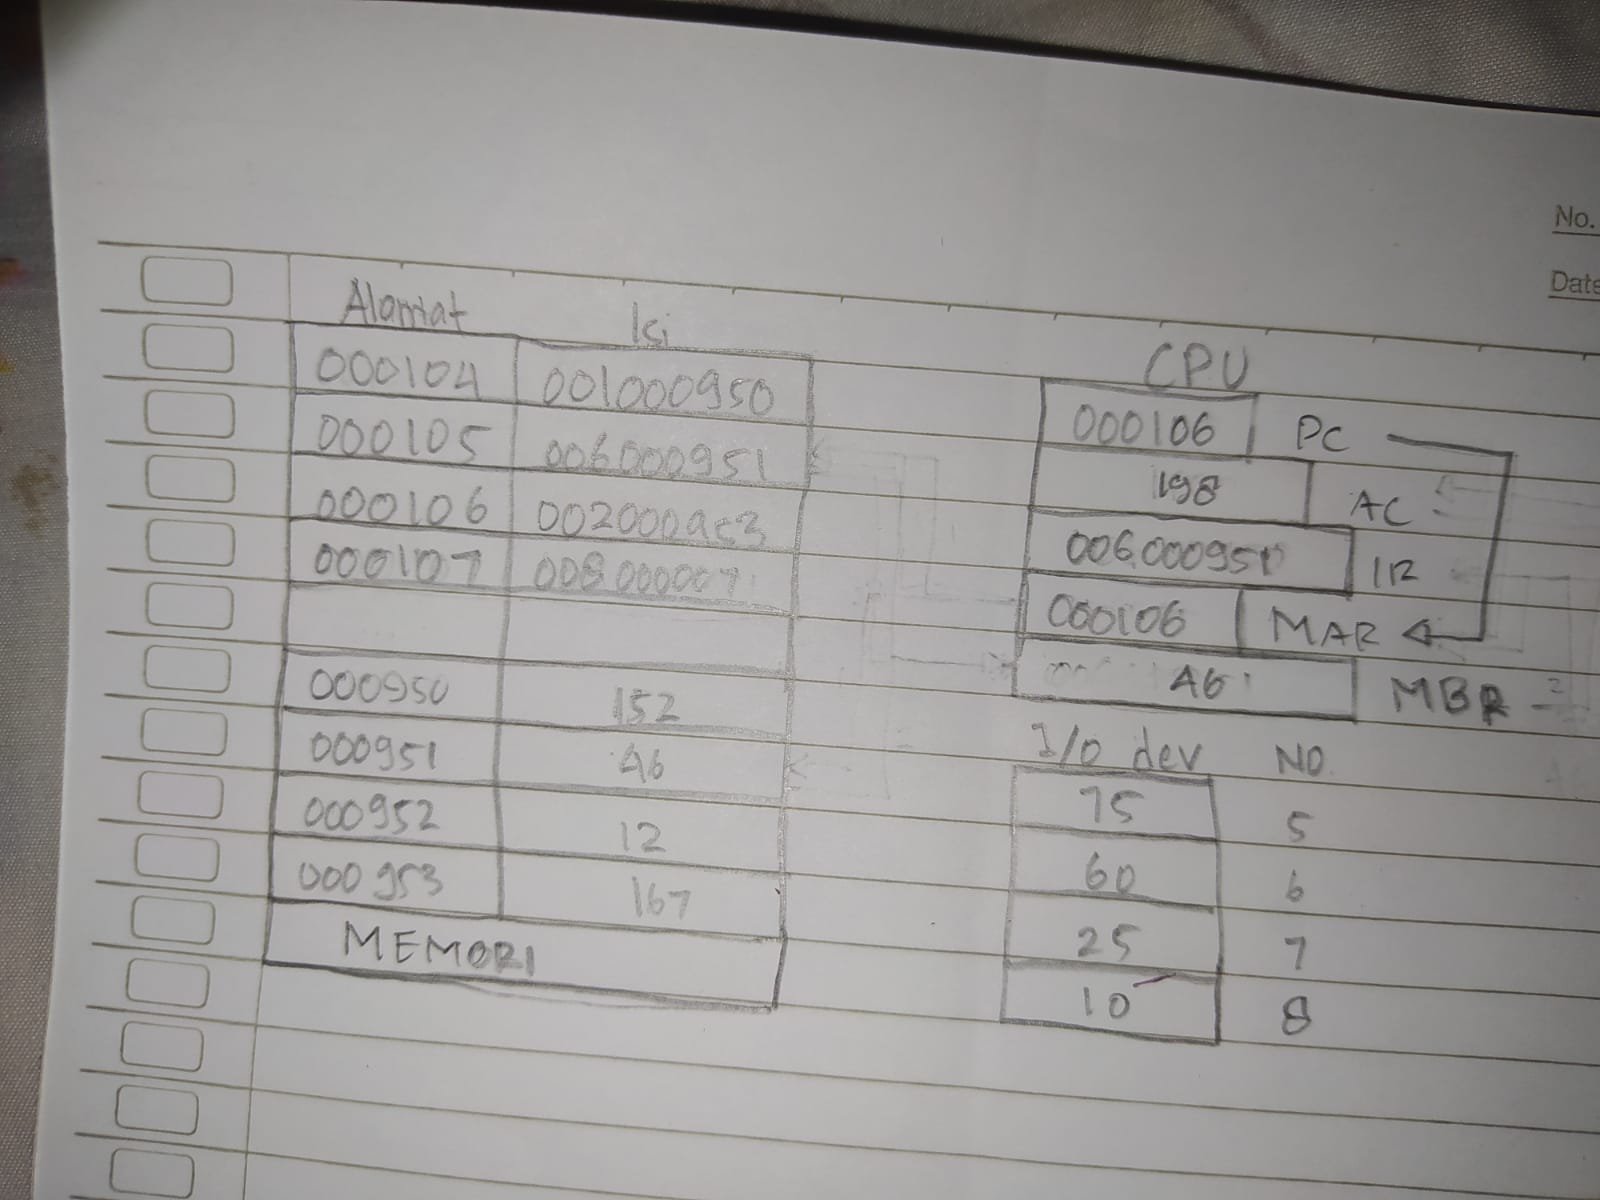 No.
Date
Alamat Isi
000104 001000950
000105 006000951
000106
000107
000950 152
000951 46
000952 12
000953 167
MEMORI
CPU
000106 PC
198 AC
IR
000106 MAR
46 MBR
I/O dev NO.
75 5
60 6
25 7
10 8